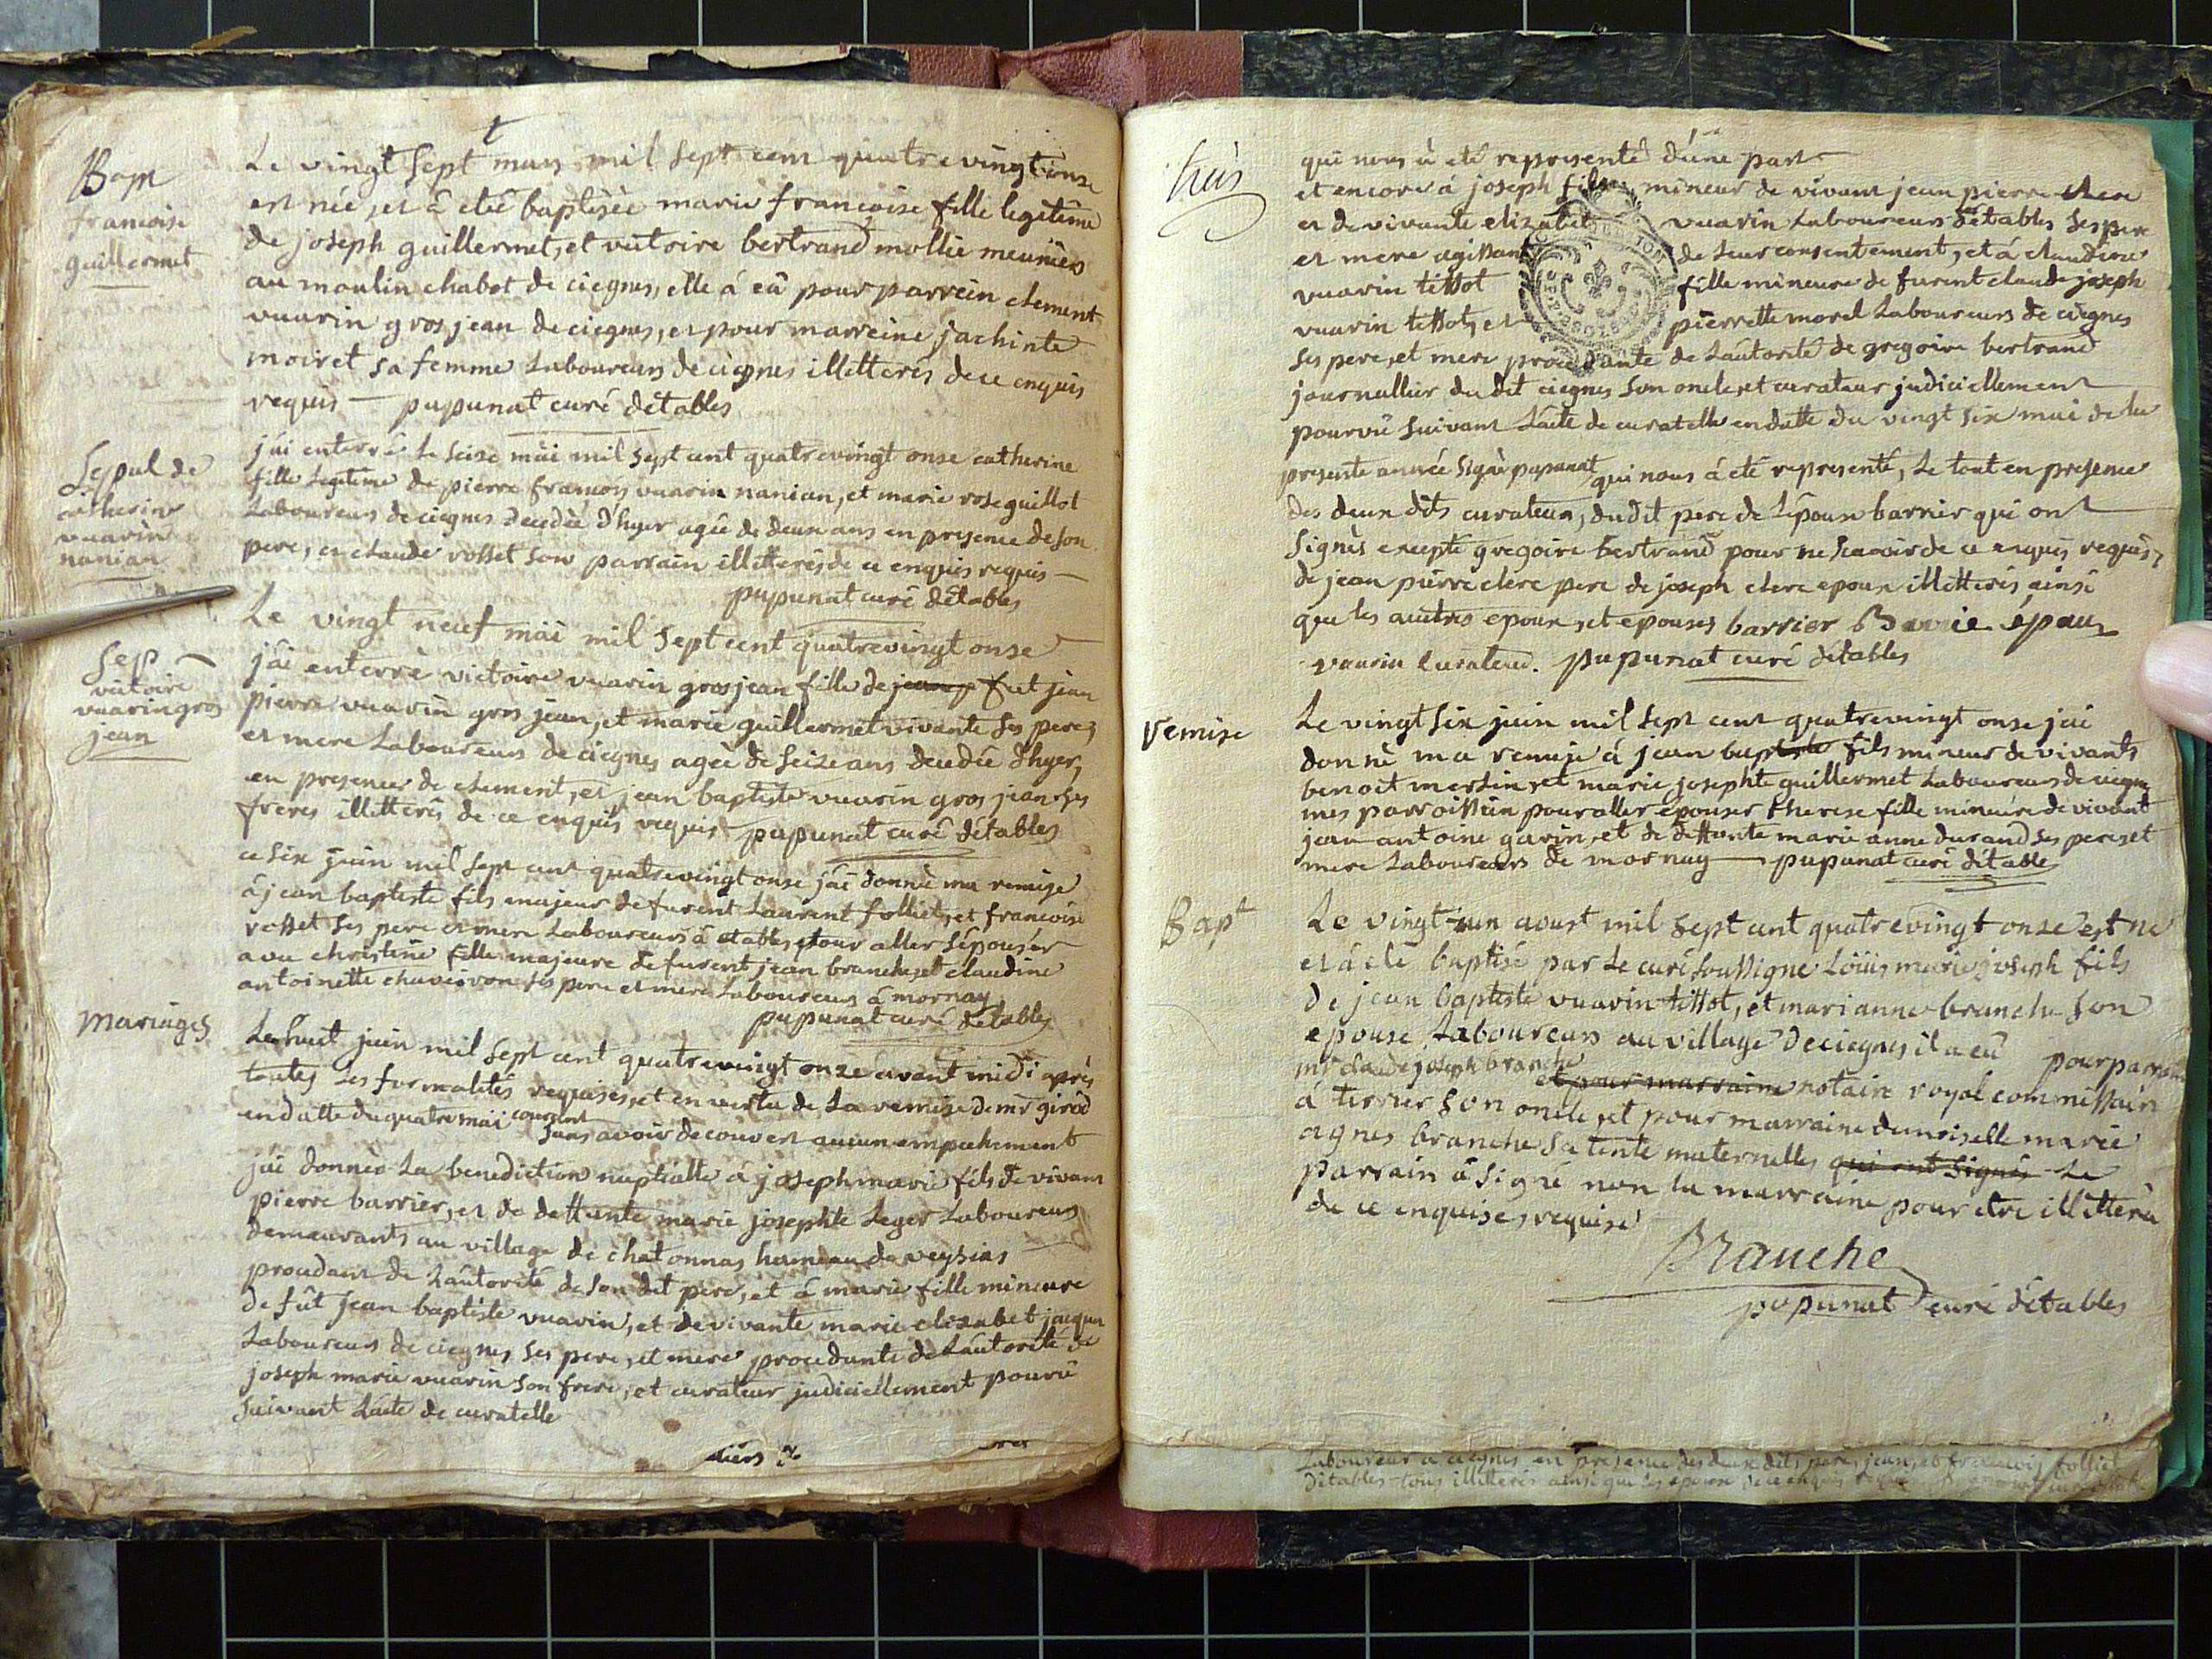 Bap
francoise
guillermet
Le vingt sept mars mil sept cent quatre vingt onze
est née, et à eté baptisèe marie françoise fille legitime
de joseph guillermet, et victoire bertrand mollie meuniers
au moulin chabot de ciegnes, elle á eû pour parrein clement
vuarin gros jean de ciegnes, et pour marreine jachinte
moiret sa femme Laboureurs de ciegnes illetterés de ce enquis
requis — pupunat curé détables
Sepul de
catherine
vuarin
nanian
j'ai enterré Le seize mäi mil sept cent quatre vingt onse catherine
fille Legitime de pierre françois vuarin nanian, et marie rose guillot
Laboureurs de ciegnes decedèe d'hyer agée de deux ans en presence de son
pere, et claude rosset son parrain illetterés de ce enquis requis —
pupunat curé détables
Sep
victoire
vuarin gros
jean
Le vingt neuf mäi mil sept cent quatrevingt onse
j'ai enterrè victoire vuarin gros jean fille de feut jean
pierre vuarin gros jean, et marie guillermet vivante ses pere,
et mere Laboureurs de ciegnes agèe de seize ans decedée d'hyer,
en presence de clement, et jean baptiste vuarin gros jean ses
freres illetterés de ce enquis requis pupunat curé détables
ce six juin mil sept cent quatrevingt onse j'ai donnè ma remise
à jean baptiste fils majeur de furent Laurent folliet, et francoise
rosset ses pere et mere Laboureurs à etables pour aller s'épouser
avec christine fille majeure de furent jean branche, et claudine
antoinette ses pere et mere Laboureurs à mornay
pupunat curé détables
Mariages
Le huit juin mil sept cent quatrevingt onze avant midi après
toutes Les formalités requises, et en vertu de La remise de mr girod
en datte du quatre mai courrent sans avoir decouvert aucun empechement
jäi donnèe La benediction nuptialle à joseph marie fils de vivant
pierre barrier, et de deffunte marie josephte Leger Laboureurs
demeurants au village de chatonnas hameau de veysias
procedant de Láutorité de son dit pere, et á marie fille mineure
de fût jean baptiste vuarin, et de vivante marie elizabet jaquer
Laboureurs de ciegnes ses pere, et mere procedante de Láutorité de
joseph marie vuarin son frere, et curateur judiciellement pourvû
suivant Láite de curatelle
qui nous à eté representé d'une part
et encore à joseph fils mineur de vivant jean pierre clere
et de vivante elizabet vuarin Laboureurs détables ses pere
et mere agissant de leur consentement, et á claudine
vuarin tissot fille mineure de furent claude joseph
vuarin tissot, et pierrette morel Laboureurs de ciegnes
ses pere, et mere procedante de Láutorité de gregoire bertrand
journallier du dit ciegnes son oncle, et curateur judiciellement
pourvû suivant Láite de curatelle en datte du vingt six mai de la
presente année signè pupunat qui nous á eté representé, Le tout en presence
des deux dits curateurs, du dit pere de Lépoux barrier qui ont
signès excepté gregoire bertrand pour ne scavoir de ce enquis requis,
de jean pierre clere pere de joseph clere epoux illetterés ainsi
que les autres epoux, et epouses barrier épaux
vuarin Curateur. pupunat curé détables
remise
Le vingt six juin mil sept cent quatrevingt onse jái
donné ma remise á jean baptiste fils mineur de vivants
benoit merlin, et marie josephte guillermet Laboureurs de ciegnes
mes parroissien pour aller épouser therese fille mineure de vivant
jean antoine gavin, et de deffunte marie anne durand ses pere, et
mere Laboureurs de mornay — pupunat curé détable
Bapt
Le vingt un aoust mil sept cent quatrevingt onze est né
et á eté baptisé par Le curé soussigné Loüis marie joseph fils
de jean baptiste vuarin tissot, et marianne branche son
epouse, Laboureurs au village de ciegnes il a eû pour parrain
mr claude joseph branche et pour marraine notaire royal commissaire
á terrier son oncle, et pour marraine demoiselle marie
agnes branche sa tente maternelles qui ont signés Le
parrain à signé non la marraine pour etre illetterée
de ce enquise, requise
Branche
pupunat curé détables
Laboureur a ciegnes en presence des deux dits pere, jean, et francois folliet
détables tous illetterés ainsi que les epoux de ce enquis